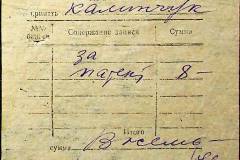 принять Калинчук
№№ Содержание записи Сумма
за
патент 8-
Итого
сумма Восемь